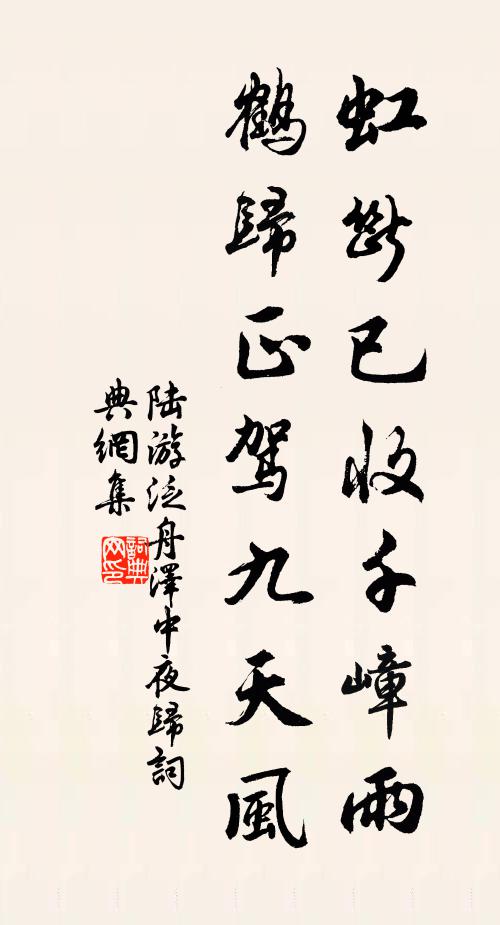 虹斷已收千嶂雨
鶴歸正駕九天風
陸游泛舟澤中夜歸詞
典網集
詞典網印